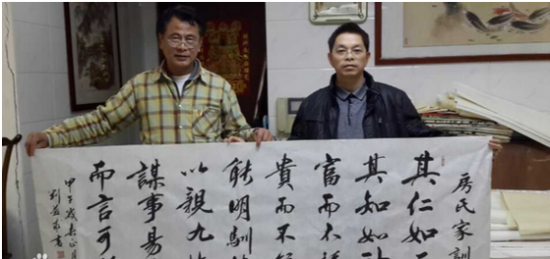 房氏家訓
其仁如天
其知如神
富而不驕
貴而不舒
能明馴德
以親九族
謀事易
而言可
甲午歲春正月
書